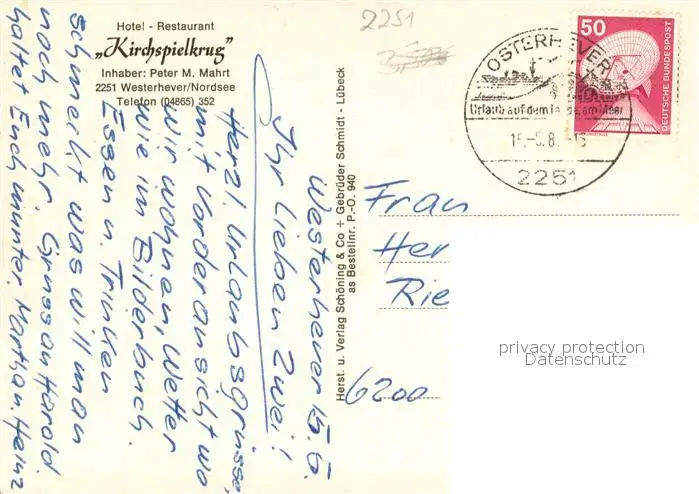 Hotel - Restaurant
„Kirchspielkrug"
Inhaber: Peter M. Mahrt
2251 Westerhever/Nordsee
Telefon (04865) 352
Westerhever 15.5.
Ihr Lieben Zwei!
Herzl. Urlaubsgrüsse
mit Vorderansicht wo
wir wohnen, Wetter
wie im Bilderbuch.
Essen u. Trinken
schmeckt was will man
noch mehr. Gruss an Harald
haltet Euch munter. Martha u. Heinz
Herst. u. Verlag Schöning & Co + Gebrüder Schmidt - Lübeck
as Bestellnr. P.-O. 940
2251
OSTERHEVER
Urlaub auf dem am Meer
15.-5.8
2251
50
DEUTSCHE BUNDESPOST
Frau
Her
Rie
6200
privacy protection
Datenschutz